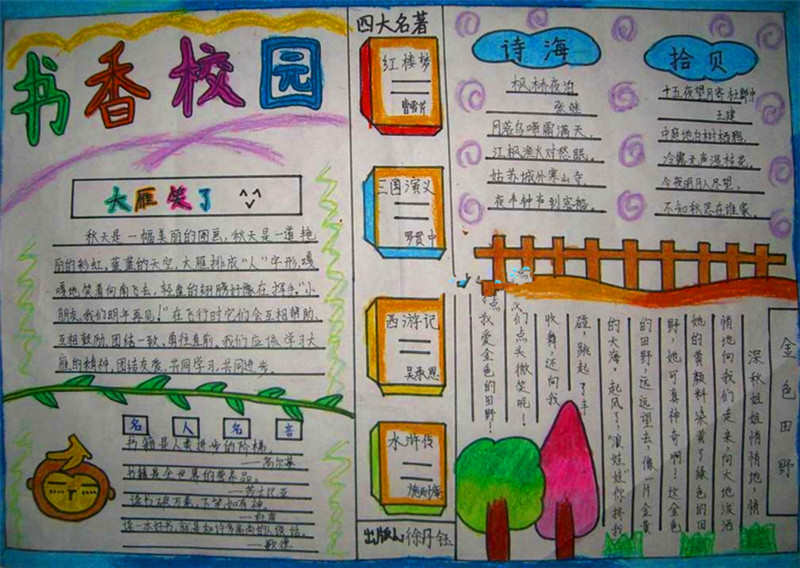 书香校园
大雁笑了
秋天是一幅美丽的图画,秋天是一道艳
丽的彩虹,蓝蓝的天空,大雁排成“人”字形,嘎
嘎地笑着向南飞去,轻盈的翅膀好像在挥手,“小
朋友,我们明年再见!”在飞行时它们会互相帮助,
互相鼓励,团结一致,勇往直前,我们应该学习大
雁的精神,团结友爱,共同学习,共同进步。
名人名言
书籍是人类进步的阶梯。
——高尔基
书籍是全世界的营养品。
——莎士比亚
读书破万卷,下笔如有神。
——杜甫
读一本好书,就是和许多高尚的人谈话。
——歌德
四大名著
红楼梦
曹雪芹
三国演义
罗贯中
西游记
吴承恩
水浒传
施耐庵
出版人
徐丹钰
诗海
枫桥夜泊
张继
月落乌啼霜满天,
江枫渔火对愁眠。
姑苏城外寒山寺,
夜半钟声到客船。
拾贝
十五夜望月寄杜郎中
王建
中庭地白树栖鸦,
冷露无声湿桂花。
今夜明月人尽望,
不知秋思在谁家。
金色田野
深秋姐姐悄悄地,悄
悄地向我们走来向大地泼洒
她的黄颜料染黄了绿色的田
野,她可真神奇啊!这金色
的田野,远远望去,像一片金黄
的大海。起风了,浪娃娃你挤我
碰,跳起了丰
收舞,还向我
们点头微笑呢!
我爱金色的田野!